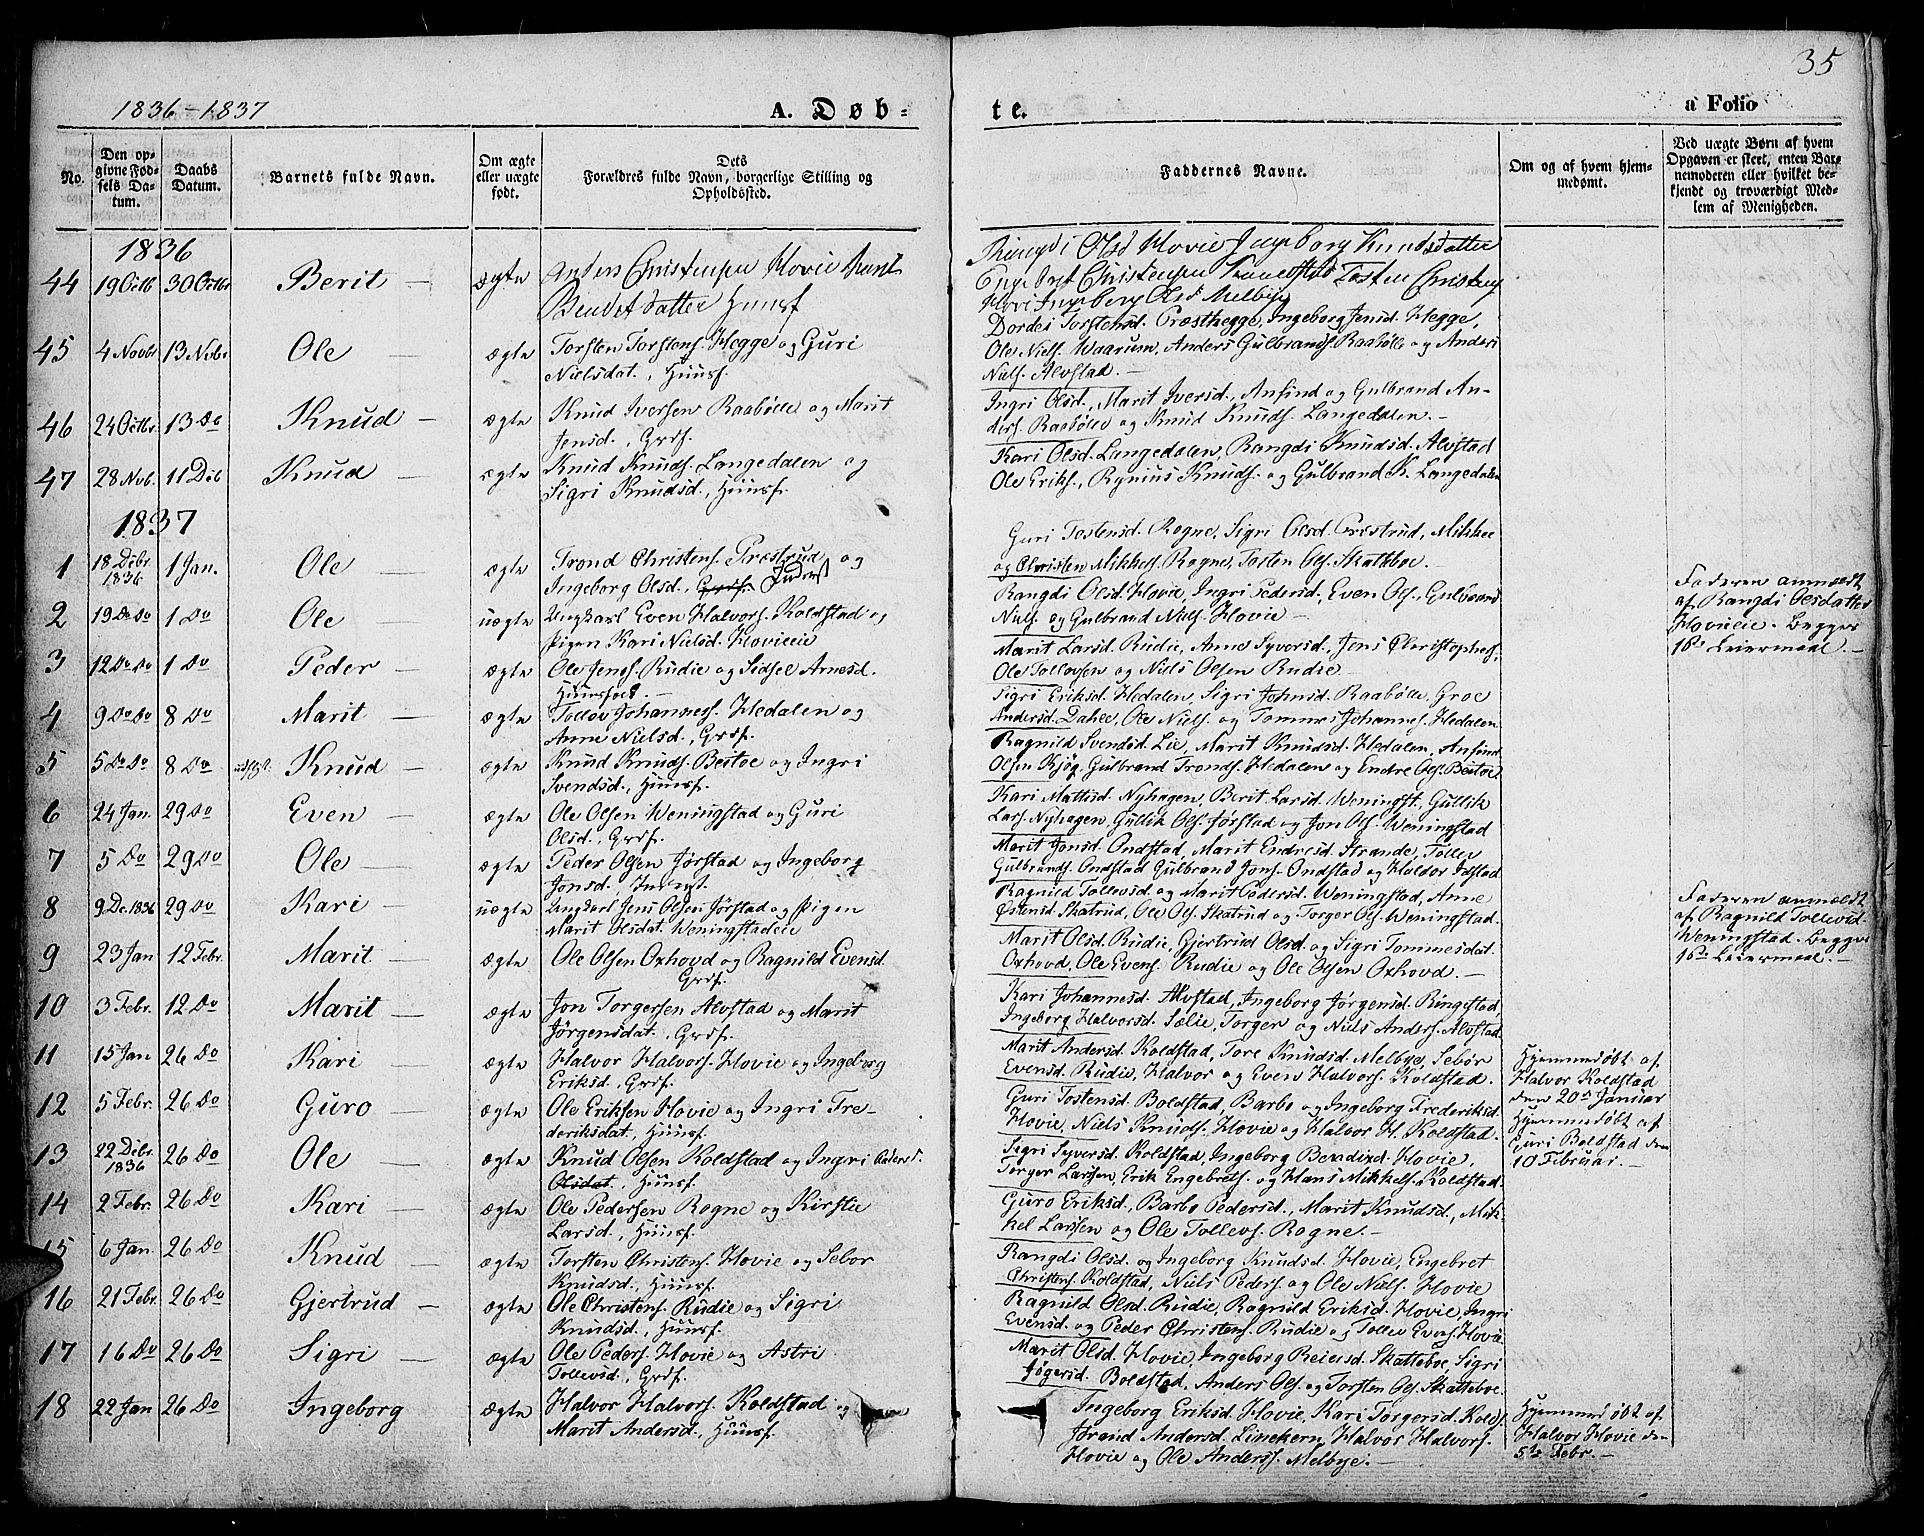 35
1836-1837
A. Døb-
te.
a Folio
No.
Den op-
givne Fød-
sels Da-
tum.
Daabs
Datum.
Barnets fulde Navn.
Om ægte
eller uægte
født.
Dets
Forældres fulde Navn, borgerlige Stilling og
Opholdssted.
Faddernes Navne.
Om og af hvem hjem-
medømt.
Ved uægte Børn af hvem
Opgaven er skeet, enten Bar-
nemoderen eller hvilket be-
kjendt og troværdigt Med-
lem af Menigheden.
1836
44 19 Octb 30 Octbr Berit — ægte Anders Christensen Hovie Marit
Bendetdatter Huusf
Rangdi Olsd Hovie Ingeborg Knudsdatter
Christensen Tosten Christens
Hovi Ingeborg Olsd Melbye
45 4 Novbr 13 Nvbr Ole — ægte Torsten Torstens. Hegge og Guri
Nielsdat., Huusf.
Dordei Torstensd. Præsthegge, Ingeborg Jensd. Hegge,
Ole Niels. Waarum, Anders Gulbrands. Raabølle og Anders
Niels. Alvstad. —
46 24 Octbr. 13 Do Knud — ægte Knud Iversen Raabølle og Marit
Jensd., Grdf.
Ingri Olsd., Marit Iversd., Anfind og Gulbrand An-
ders. Raabølle og Knud Knuds. Langedalen. —
47 28 Nvb. 11 Dcb Knud — ægte Knud Knuds. Langedalen og
Sigri Knudsd., Huusf.
Kari Olsd. Langedalen, Rangdi Knudsd. Alvstad
Ole Eriks., Rynius Knuds. og Gulbrand K. Langedalen
1837
1 18 Debr. 1836 1 Jan. Ole — ægte Trond Christens. Præstrud, og
Ingeborg Olsd., Grdf. Inderst
Guri Tostensd. Rogne, Sigri Olsd. Præstrud, Mikkel
og Christen Mikkels. Rogne, Tosten Ols. Skattboe. —
2 19 Do Do 1 Do Ole — uægte Ungkarl Even Halvors. Koldstad og
Pigen Kari Nielsd. Hovieeie
Rangdi Olsd. Hovie, Ingri Pedersd., Even Ols., Gulbrand
Niels. og Gulbrand Niels. Hovie —
Faderen anmældt
af Rangdi Olsdatter
Hovieeie. Begges
1ste Leiermaal. —
3 12 Do Do 1 Do Peder — ægte Ole Jens. Rudie og Sidsel Arnesd.
Huusfolk. —
Marit Larsd. Rudie, Anne Syversd., Jens Christophers.,
Ole Tollevsen og Niels Olsen Rudie —
4 9 Do Do 8 Do Marit — ægte Tollev Johannes. Hedalen og
Anne Nielsd., Grdf.
Sigri Eriksd. Hedalen, Sigri Johnsd. Raabølle, Groe
Andersd. Dahle, Ole Niels. og Tommes Johannes. Hedalen
5 5 Do Do 8 Do Knud — ægte Knud Knuds. Beitoe og Ingri
Svendsd., Huusf.
Ragnild Svendsd. Lie, Marit Knudsd. Hedalen, Anfind
Olsen Kjøg, Gulbrand Tronds. Hedalen og Endre Ols. Beitoe
6 24 Jan. 29 Do Even — ægte Ole Olsen Weningstad og Guri
Olsd., Grdf.
Kari Mattisd. Nyhagen, Berit Larsd. Weningst., Gullik
Lars. Nyhagen, Gullik Ols. Jørstad og Jon Ols. Weningstad
7 5 Do 29 Do Ole — ægte Peder Olsen Jørstad og Ingeborg
Jonsd., Inderst.
Marit Jonsd. Ondstad, Marit Endresd. Strande, Tollev
Gulbrands. Ondstad Gulbrand Jons. Ondstad og Haldor Idstad
8 9 Dc. 1836 29 Do Kari — uægte Ungkarl Jens Olsen Jørstad og Pigen
Marit Olsdat. Weningstadeie
Ragnild Tollevsd. og Marit Pedersd. Weningstad, Anne
Østensd Skatrud, Ole Ols. Skatrud og Torger Ols. Weningstad.
Faderen anmældt
af Ragnild Tollevsd.
Weningstad. Begges
1ste Leiermaal. —
9 23 Jan 12 Febr. Marit — ægte Ole Olsen Oxhovd og Ragnild Evensd.
Grdf.
Marit Olsd. Rudie, Gjertrud Olsd. og Sigri Tommesdat.
Oxhovd, Ole Evens. Rudie og Ole Olsen Oxhovd. —
10 3 Febr. 12 Do Marit — ægte Jon Torgersen Alvstad og Marit
Jørgensdat., Grdf.
Kari Johannesd. Alvstad, Ingeborg Jørgensd. Ringestad,
Ingeborg Halvorsd. Sælie, Torger og Niels Anders. Alvstad
11 15 Jan 26 Do Kari — ægte Halvor Halvors. Hovie og Ingeborg
Eriksd., Grdf.
Marit Andersd. Koldstad, Tore Knudsd. Melbye, Sebør
Evensd. Rudie, Halvor og Even Halvors. Koldstad.
Hjemmedøbt af
Halvor Koldstad
den 20de Januar
12 5 Febr. 26 Do Guro — ægte Ole Eriksen Hovie og Ingri Fre-
deriksdat., Huusf.
Guri Tostensd. Boldstad, Barbo og Ingeborg Frederiksd.
Hovie, Niels Knuds. Hovie og Halvor H. Koldstad.
Hjemmedøbt af
Guri Boldstad den
10 Februar. —
13 22 Debr. 1836 26 Do Ole — ægte Knud Olsen Koldstad og Ingri Anders d.
Olsdat., Huusf.
Sigri Syversd. Koldstad, Ingeborg Bendixd. Hovie,
Torger Larsen, Erik Engebrets. og Hans Mikkels. Koldstad.
14 2 Febr. 26 Do Kari — ægte Ole Pedersen Rogne og Kirstie
Larsd., Huusf.
Guro Eriksd., Barbo Pedersd., Marit Knudsd., Mik-
kel Larssen og Ole Tollevs. Rogne. —
15 6 Jan. 26 Do Knud — ægte Torsten Christens. Hovie og Sebor
Knudsd., Huusf.
Rangdi Olsd. og Ingeborg Knudsd. Hovie, Engebret
Christens. Koldstad, Niels Peders. og Ole Niels. Hovie
16 21 Febr. 26 Do Gjertrud — ægte Ole Christens. Rudie og Sigri
Knudsd., Huusf.
Ragnild Olsd. Rudie, Ragnild Eriksd. Hovie, Ingri
Evensd. og Peder Christens. Rudie og Tollev Evens. Hovie
17 16 Do 26 Do Sigri — ægte Ole Peders. Hovie og Astri
Tollevsd., Grdf.
Marit Olsd. Hovie, Ingeborg Reiersd. Skatteboe, Sigri
Jøgersd. Boldstad, Anders Ols. og Torsten Ols. Skatteboe.
18 22 Jan 26 Do Ingeborg ægte Halvor Halvors. Koldstad og
Marit Andersd., Huusf.
Ingeborg Eriksd. Hovie, Kari Torgersd. Kold-
Jørand Andersd. Linekern, Halvor Halvors.
Hovie og Ole Anderss. Melbye. —
Hjemmedøbt af
Halvor Hovie den
5te Febr. —